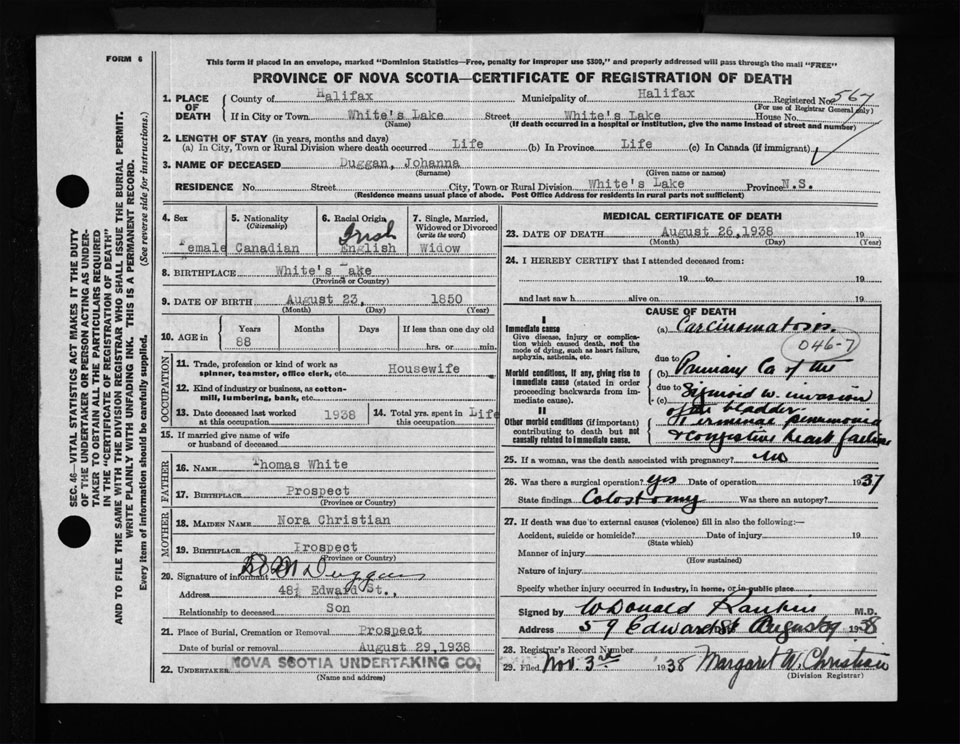 FORM 6
This form if placed in an envelope, marked "Dominion Statistics—Free, penalty for improper use $300," and properly addressed will pass through the mail "FREE"
PROVINCE OF NOVA SCOTIA—CERTIFICATE OF REGISTRATION OF DEATH
SEC. 46—VITAL STATISTICS ACT MAKES IT THE DUTY
OF THE UNDERTAKER OR PERSON ACTING AS UNDER-
TAKER TO OBTAIN ALL THE PARTICULARS REQUIRED
IN THE "CERTIFICATE OF REGISTRATION OF DEATH"
AND TO FILE THE SAME WITH THE DIVISION REGISTRAR WHO SHALL ISSUE THE BURIAL PERMIT.
WRITE PLAINLY WITH UNFADING INK. THIS IS A PERMANENT RECORD.
Every item of information should be carefully supplied. (See reverse side for instructions.)
1. PLACE OF DEATH
County of Halifax Municipality of Halifax Registered No. 567
(For use of Registrar General only)
If in City or Town White's Lake Street White's Lake House No.
(Name) (If death occurred in a hospital or institution, give the name instead of street and number)
2. LENGTH OF STAY (in years, months and days)
(a) In City, Town or Rural Division where death occurred Life (b) In Province Life (c) In Canada (if immigrant)
3. NAME OF DECEASED Duggan, Johanna
(Surname) (Given name or names)
RESIDENCE No. Street City, Town or Rural Division White's Lake Province N.S.
(Residence means usual place of abode. Post Office Address for residents in rural parts not sufficient)
4. Sex Female
5. Nationality (Citizenship) Canadian
6. Racial Origin Irish English
7. Single, Married, Widowed or Divorced (write the word) Widow
8. BIRTHPLACE White's Lake
(Province or Country)
9. DATE OF BIRTH August 23, 1850
(Month) (Day) (Year)
10. AGE in Years Months Days If less than one day old
88 hrs. or min.
OCCUPATION
11. Trade, profession or kind of work as spinner, teamster, office clerk, etc. Housewife
12. Kind of industry or business, as cotton-mill, lumbering, bank, etc.
13. Date deceased last worked at this occupation 1938
14. Total yrs. spent in this occupation Life
15. If married give name of wife or husband of deceased
FATHER
16. NAME Thomas White
17. BIRTHPLACE Prospect
(Province or Country)
MOTHER
18. MAIDEN NAME Nora Christian
19. BIRTHPLACE Prospect
(Province or Country)
20. Signature of informant Duggan
Address 48½ Edward St.,
Relationship to deceased Son
21. Place of Burial, Cremation or Removal Prospect
Date of burial or removal August 29, 1938
22. UNDERTAKER NOVA SCOTIA UNDERTAKING CO.
(Name and address)
MEDICAL CERTIFICATE OF DEATH
23. DATE OF DEATH August 26, 1938 19
(Month) (Day) (Year)
24. I HEREBY CERTIFY that I attended deceased from:
19 to 19
and last saw h alive on 19
CAUSE OF DEATH
I
Immediate cause
Give disease, injury or complication which caused death, not the mode of dying, such as heart failure, asphyxia, asthenia, etc.
(a) Carcinomatosis
046-7
Morbid conditions, if any, giving rise to immediate cause (stated in order proceeding backwards from immediate cause).
due to (b) Primary Ca of the
due to (c) Sigmoid w. invasion
of the bladder
II
Other morbid conditions (if important) contributing to death but not causally related to immediate cause.
Terminal Pneumonia
& congestive heart failure
25. If a woman, was the death associated with pregnancy? no
26. Was there a surgical operation? yes Date of operation 1937
State findings Colostomy Was there an autopsy?
27. If death was due to external causes (violence) fill in also the following:—
Accident, suicide or homicide? Date of injury 19
(State which)
Manner of injury
(How sustained)
Nature of injury
Specify whether injury occurred in industry, in home, or in public place
Signed by W Donald Rankin M.D.
Address 59 Edward St August 29 1938
28. Registrar's Record Number
29. Filed Nov. 3rd 1938 Margaret W. Christian
(Division Registrar)